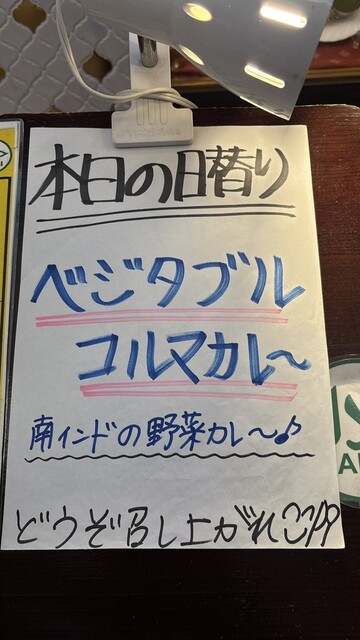 本日の日替り
ベジタブル
コルマカレ～
南インドの野菜カレ～♪
どうぞ召し上がれ